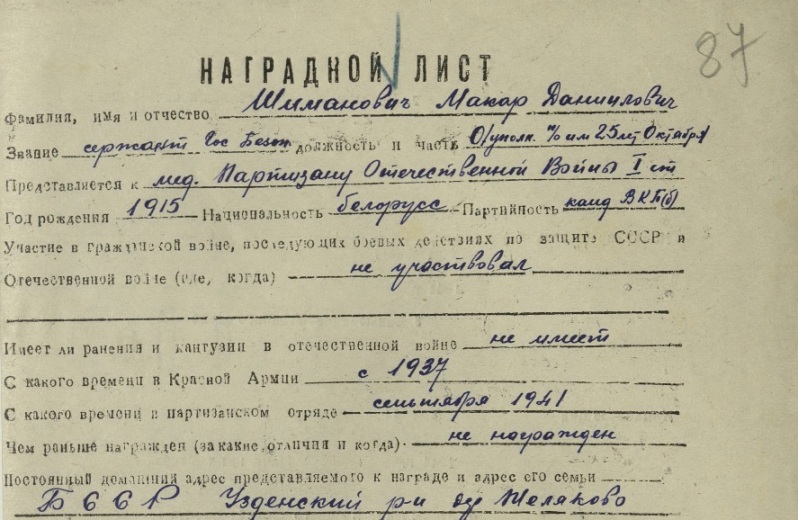 87
НАГРАДНОЙ ЛИСТ
Фамилия, имя и отчество Шиманович Макар Даниилович
Звание сержант Гос Безоп. должность и часть О/уполн. п/о им 25 лет Октября
Представляется к мед. Партизану Отечественной Войны I ст
Год рождения 1915 Национальность белорусс Партийность канд ВКП(б)
Участие в гражданской войне, последующих боевых действиях по защите СССР и
Отечественной войне (где, когда) не участвовал
Имеет ли ранения и контузии в отечественной войне не имеет
С какого времени в Красной Армии с 1937
С какого времени в партизанском отряде сентября 1941
Чем раньше награжден (за какие отличия и когда) не награжден
Постоянный домашний адрес представляемого к награде и адрес его семьи
БССР Узденский р-н